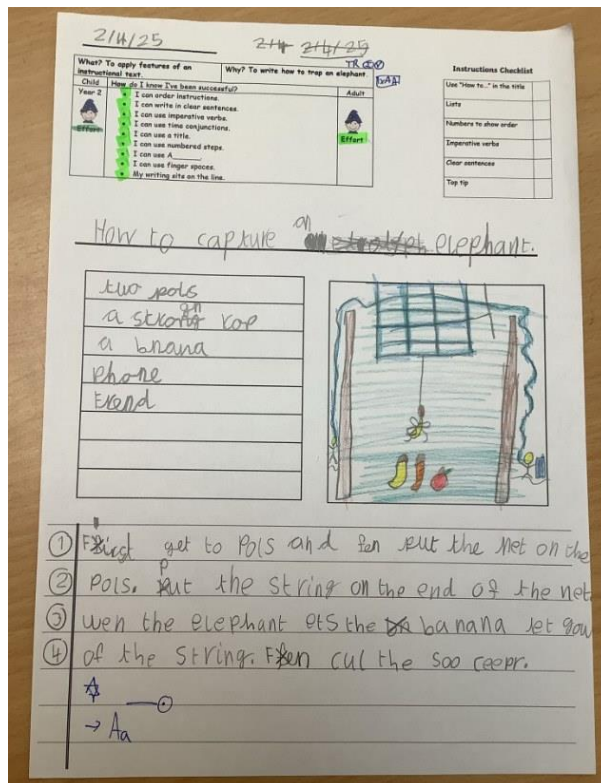 2/4/25
2/4 2/4/25
What? To apply features of an instructional text.
Why? To write how to trap an elephant.
TR
Child
How do I know I've been successful?
Adult
Year 2
I can order instructions.
I can write in clear sentences.
I can use imperative verbs.
I can use time conjunctions.
I can use a title.
I can use numbered steps.
I can use A______.
I can use finger spaces.
My writing sits on the line.
Effort
Effort
Instructions Checklist
Use "How to..." in the title
Lists
Numbers to show order
Imperative verbs
Clear sentences
Top tip
How to capture an elephant.
two pols
a strong rop
a bnana
phone
trend
1 First get to Pols and fen put the net on the
2 Pols. Put the string on the end of the net.
3 wen the elephant ets the banana let gow
4 of the string. Fen cul the soo ceepr.
→ Aa